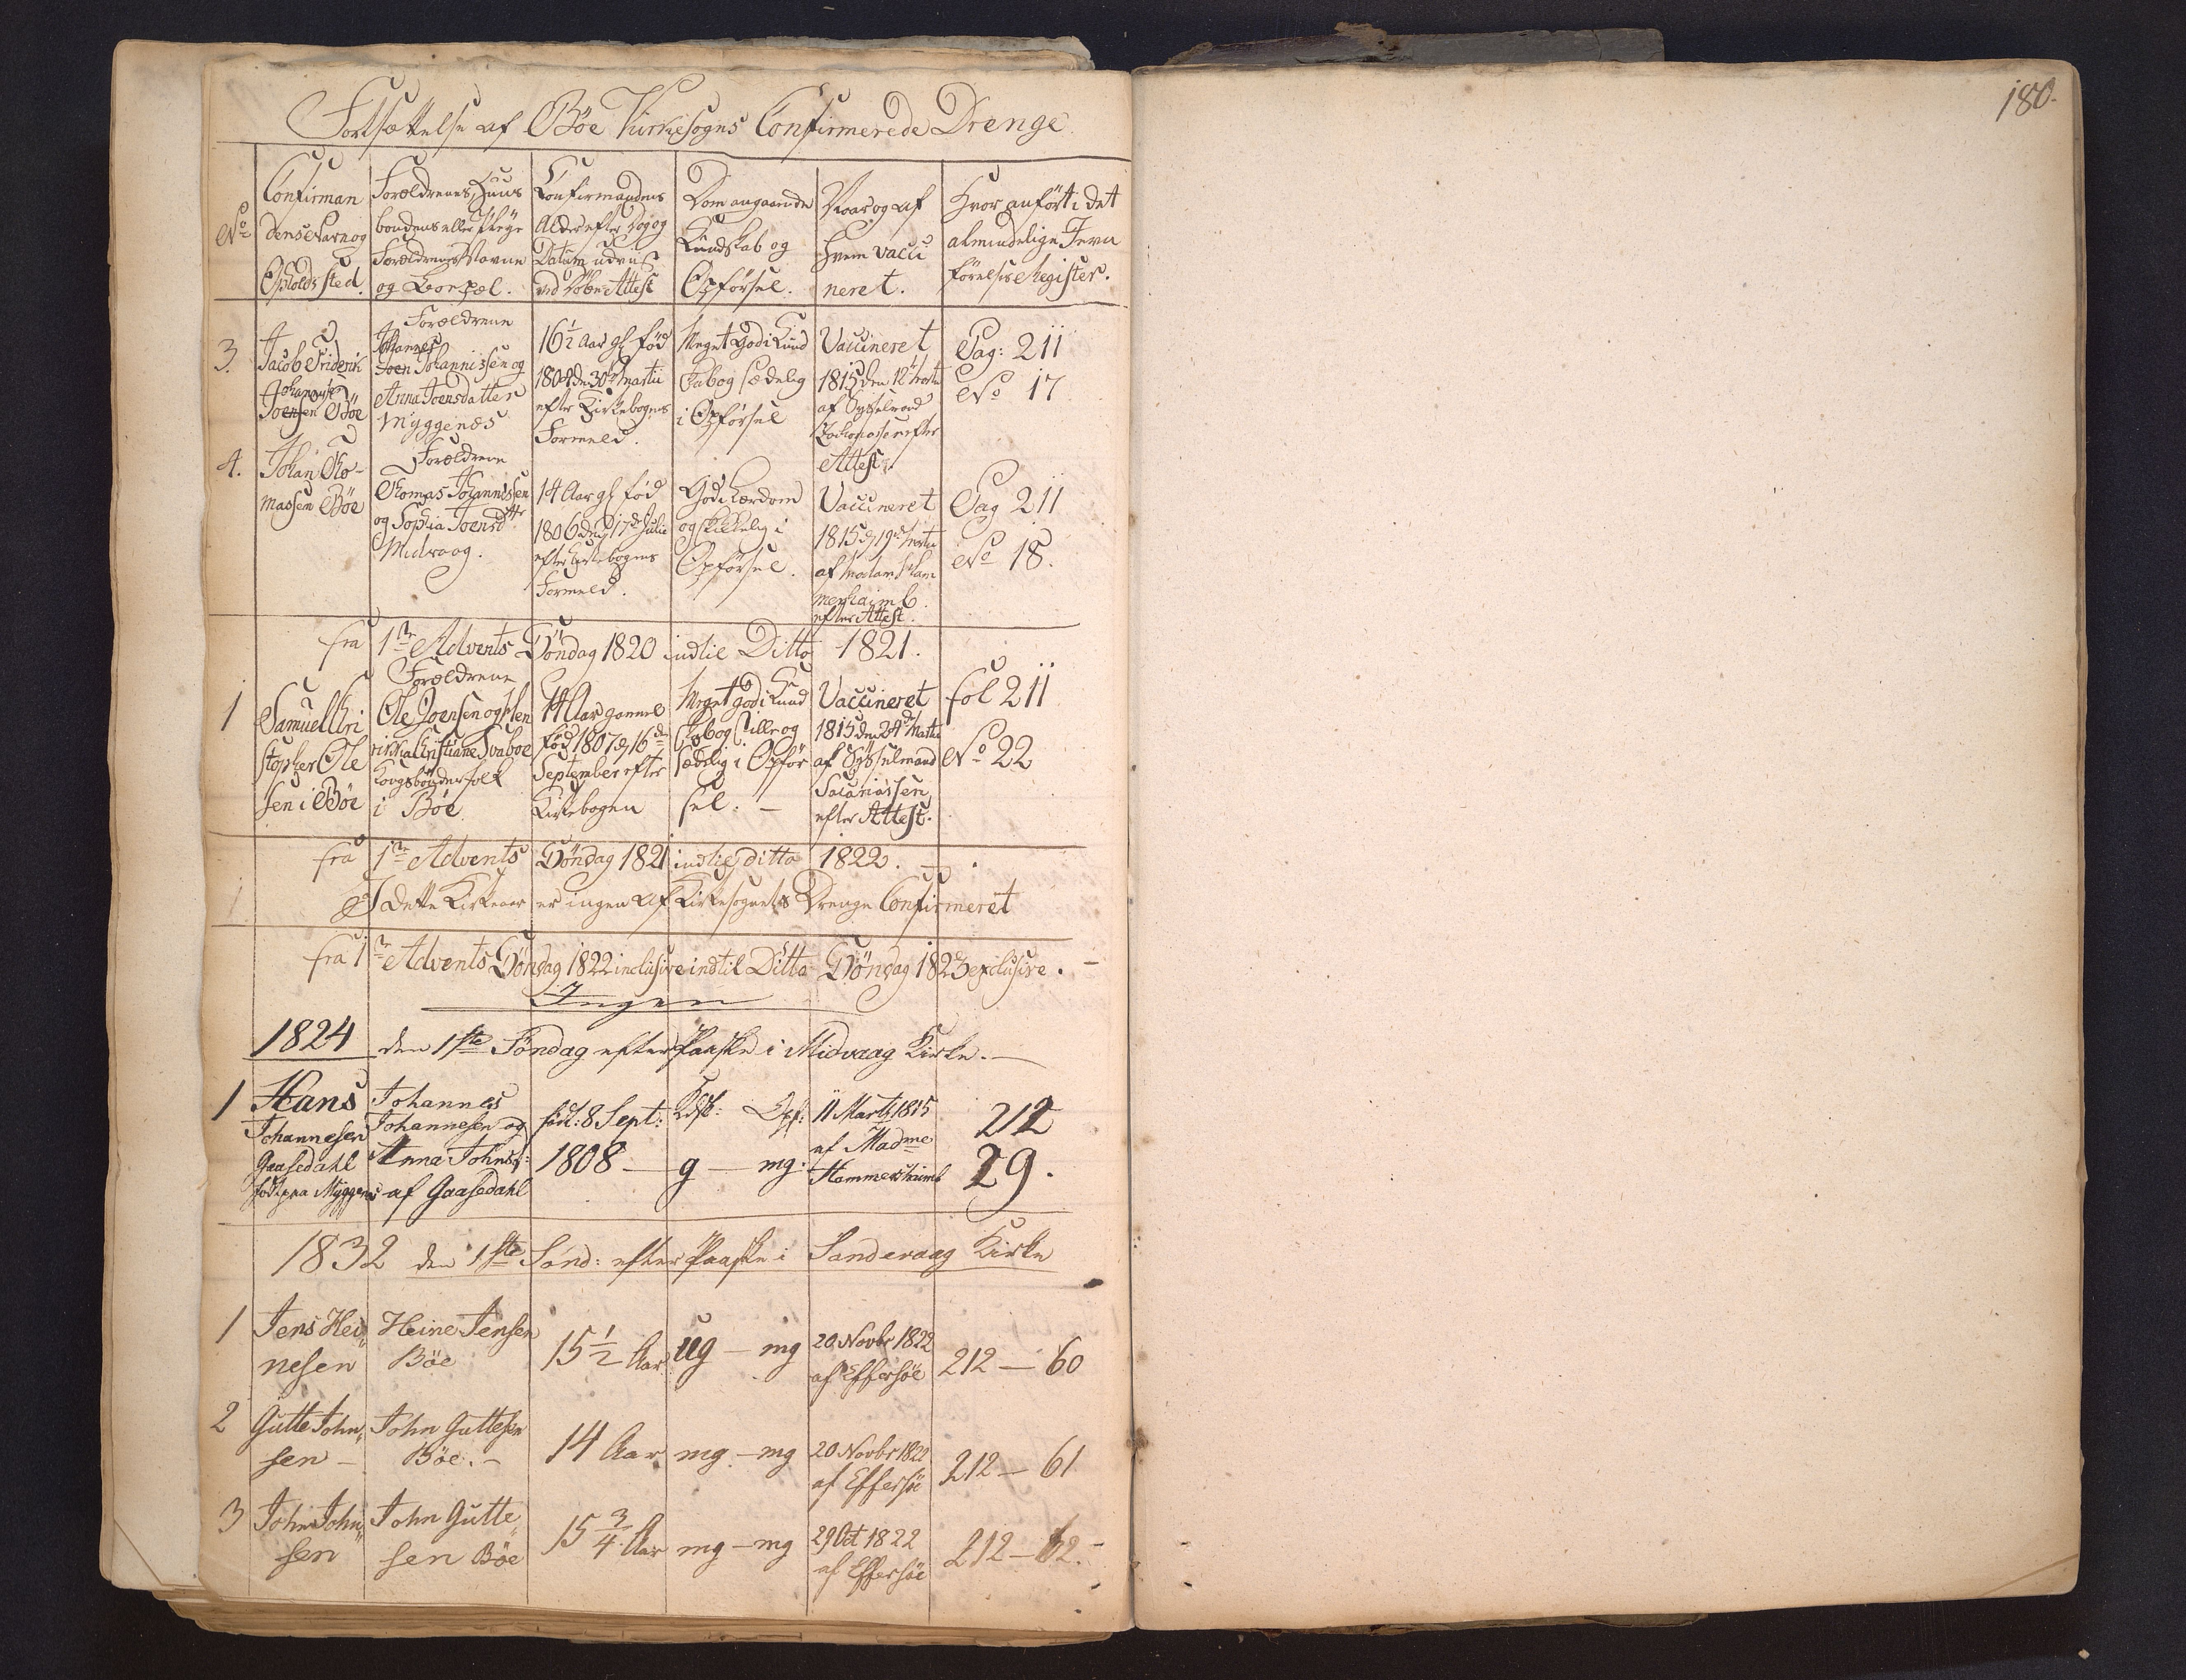 180.
Fortsættelse af Bøe Kirkesogns Confirmerede Drenge
No
Confirman
dens Navn og
Opholds sted.
Forældrenes, Huus
bondens eller Pleje
Forældrenes Navne
og Boepæl.
Confirmandens
Alder efter Dog og
Datum udviis
ved Døbe Attest
Dom angaaende
Kundskab og
Opførsel.
Naar og af
hvem vacci
neret.
Hvor anført i det
almindelige Jevn
førelses Register.
3.
Jacob Friderik
Johannis
Joensen Bøe
Forældrene
Johannes
Joen Johannissen og
Anna Joensdatter
Myggenæs
16½ Aar gl. fød
1804 den 30te Martii
efter Kirkebogens
Formeld.
Meget god i Kund
skab og sædelig
i Opførsel
Vaccineret
1815 den 12te Martii
af Sysselmand
efter
Attest.
Pag: 211
No 17
4.
Johan Tho-
massen Bøe
Forældrene
Thomas Johannissen
og Sophia Joensdtter
Midvaag.
14 Aar gl. fød
1806 den 17de Julii
efter Kirkebogens
Formeld.
God i Lærdom
og skikkelig i
Opførsel.
Vaccineret
1815 d. 19de Martii
af Madam Ham
mershaimb.
efter Attest.
Pag 211
No 18.
fra 1te Advents Søndag 1820 indtil Ditto 1821.
1
Samuel Chri
stopher Ole
sen i Bøe
Forældrene
Ole Joensen og Hen
rikka Christiane Svaboe
Kongsbønderfolk
i Bøe.
14 Aar gammel
fød 1807 d. 16de
September efter
Kirkebogen
Meget god i Kund
skab og stille og
sædelig i Opfør
sel. -
Vaccineret
1815 den 24de Martii
af Sysselmand
Sacariassen
efter Attest.
fol 211
No 22
fra 1te Advents Søndag 1821 indtil ditto 1822.
I dette Kirkeaar er ingen af Kirkesognets Drenge Confirmeret
fra 1te Advents Søndag 1822 inclusive indtil Ditto Søndag 1823 exclusive. -
Ingen
1824 den 1ste Søndag efter Paaske i Midvaag Kirke. -
1
Hans
Johannesen
Gaasedahl
født paa Myggenæs
Johannes
Johannesen og
Anna Johnsd:
af Gaasedahl
født: 8 Sept:
1808 -
Kdsk: Opf:
g - mg.
11 Marti 1815
af Madme
Hammershaimb
212
29.
1832 den 1ste Sønd: efter Paaske i Sandevaag Kirke
1
Jens Hei
nesen
Heine Jensen
Bøe
15½ Aar
ug - mg
20 Novbr 1822
af Effersøe
212 - 60
2
Gutte John
sen -
John Guttesen
Bøe. -
14 Aar
mg - mg
20 Novbr 1822
af Effersøe
212 - 61
3
John John
sen
John Gutte
sen Bøe
15¾ Aar
mg - mg
29 Oct 1822
af Effersøe
212 - 62. -